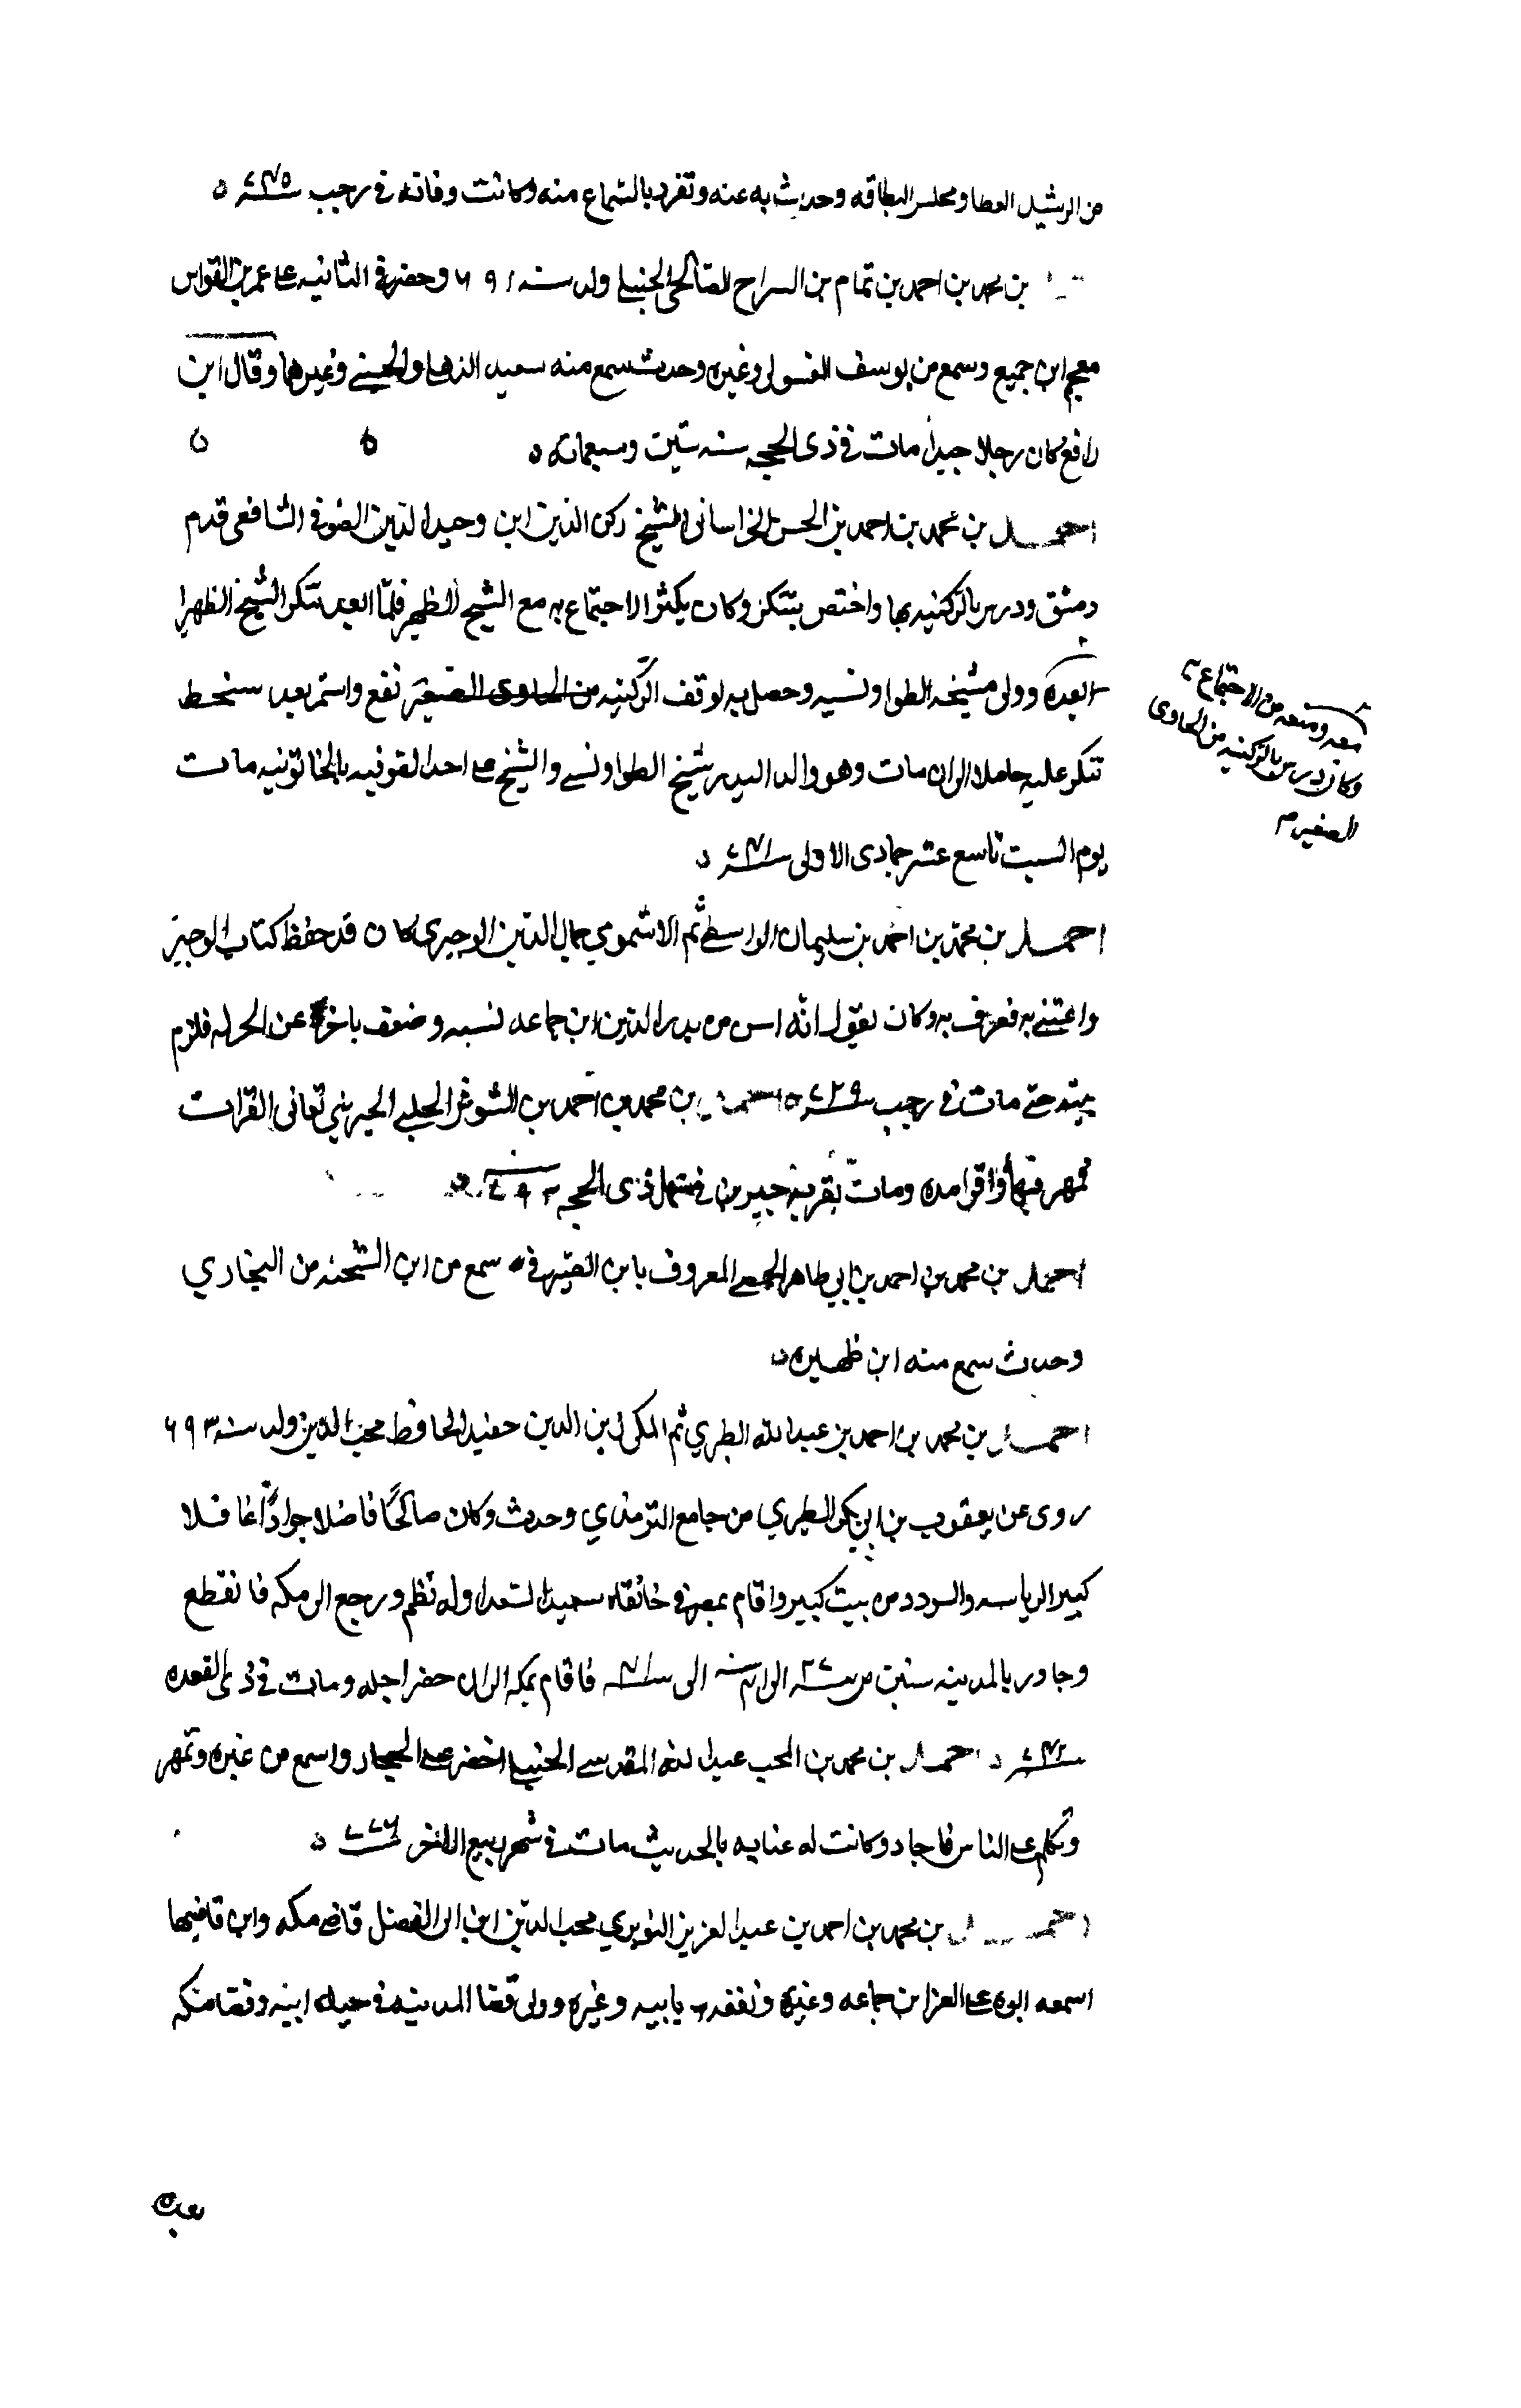 من الرشيد العطار مجلس البطاقه وحدث به عنه وتفرد بالسماع منه وكانت وفاته في رجب سنة ٧٤٥ ه
بن محمد بن احمد بن تمام بن السراج الصالحي الحنبلي ولد سنه ٦٩١ وحضر في الثانيه على عمر بن القواس
معجم ابن جميع وسمع من يوسف الغسولي وغيره وحدث سمع منه سعيد الذهلي والحسيني وغيرهما وقال ابن
رافع كان رجلا جيدا مات في ذي الحجه سنه ستين وسبعمائه ه
احمد بن محمد بن احمد بن الحسن الخراساني الشيخ ركن الدين ابن وحيد الدين الصوفي الشافعي قدم
دمشق ودرس بالركنيه بها واختص بتنكز وكان يكثر الاجتماع به مع الشيخ الظهير فلما ابعد تنكز الشيخ الظهير
ابعده وولي مشيخه الطواويسيه وحصل به لوقف الركنيه من الحاوي الصغير نفع واستمر بعد سخط
معه ومنعه من الاجتماع به
وكان يدرس بالركنيه من الحاوي
الصغير
تنكز عليه خاملا الى ان مات وهو والد البدر شيخ الطواويسي والشيخ على احد الصوفيه بالخاتونيه مات
يوم السبت تاسع عشر جمادى الاولى سنة
احمد بن محمد بن احمد بن سليمان الواسطي ثم الاشمومي جمال الدين الوجيزي كان قد حفظ كتاب الوجيز
واعتنى به فعرف به وكان يقول انه اسن من بدر الدين ابن جماعه بسنه وضعف باخره عن الحركه فلزم
بيته حتى مات في رجب سنة ٧٢٩ ه احمد بن محمد بن احمد بن الحلبي الجبريني تعانى القرات
فمهر فيها واقرا مده ومات بقريه جبرين في مستهل ذي الحجه
احمد بن محمد بن احمد بن ابي طاهر المعروف بابن سمع من ابن الشحنه من البخاري
وحدث سمع منه ابن ظهيره ه
احمد بن محمد بن احمد بن عبد الله الطبري ثم المكي زين الدين حفيد الحافظ محب الدين ولد سنه ٦٩٣
روى عن يعقوب بن ابي بكر الطبري من جامع الترمذي وحدث وكان صالحًا فاضلا جوادًا عاقلا
كبير الرياسه والسودد من بيت كبير واقام بمصر في خانقاه سعيد السعدا وله نظم ورجع الى مكه فانقطع
وجاور بالمدينه سنين من سنة الى سنة فاقام بمكه الى ان حضر اجله ومات في ذي القعده
سنة ٧٤٢ ه احمد بن محمد بن المحب عبد الله المقدسي الحنبلي احضر على الحجار واسمع من غيره وتمهر
وتكلم على الناس فاجاد وكانت له عنايه بالحديث مات في شهر ربيع الاخر سنة ٧٧٦ ه
احمد بن محمد بن احمد بن عبد العزيز النويري محب الدين ابن ابي الفضل قاضي مكه وابن قاضيها
اسمعه ابوه على العز ابن جماعه وغيره وتفقه بابيه وغيره وولي قضا المدينه في حياه ابيه وقضا مكه
بعده